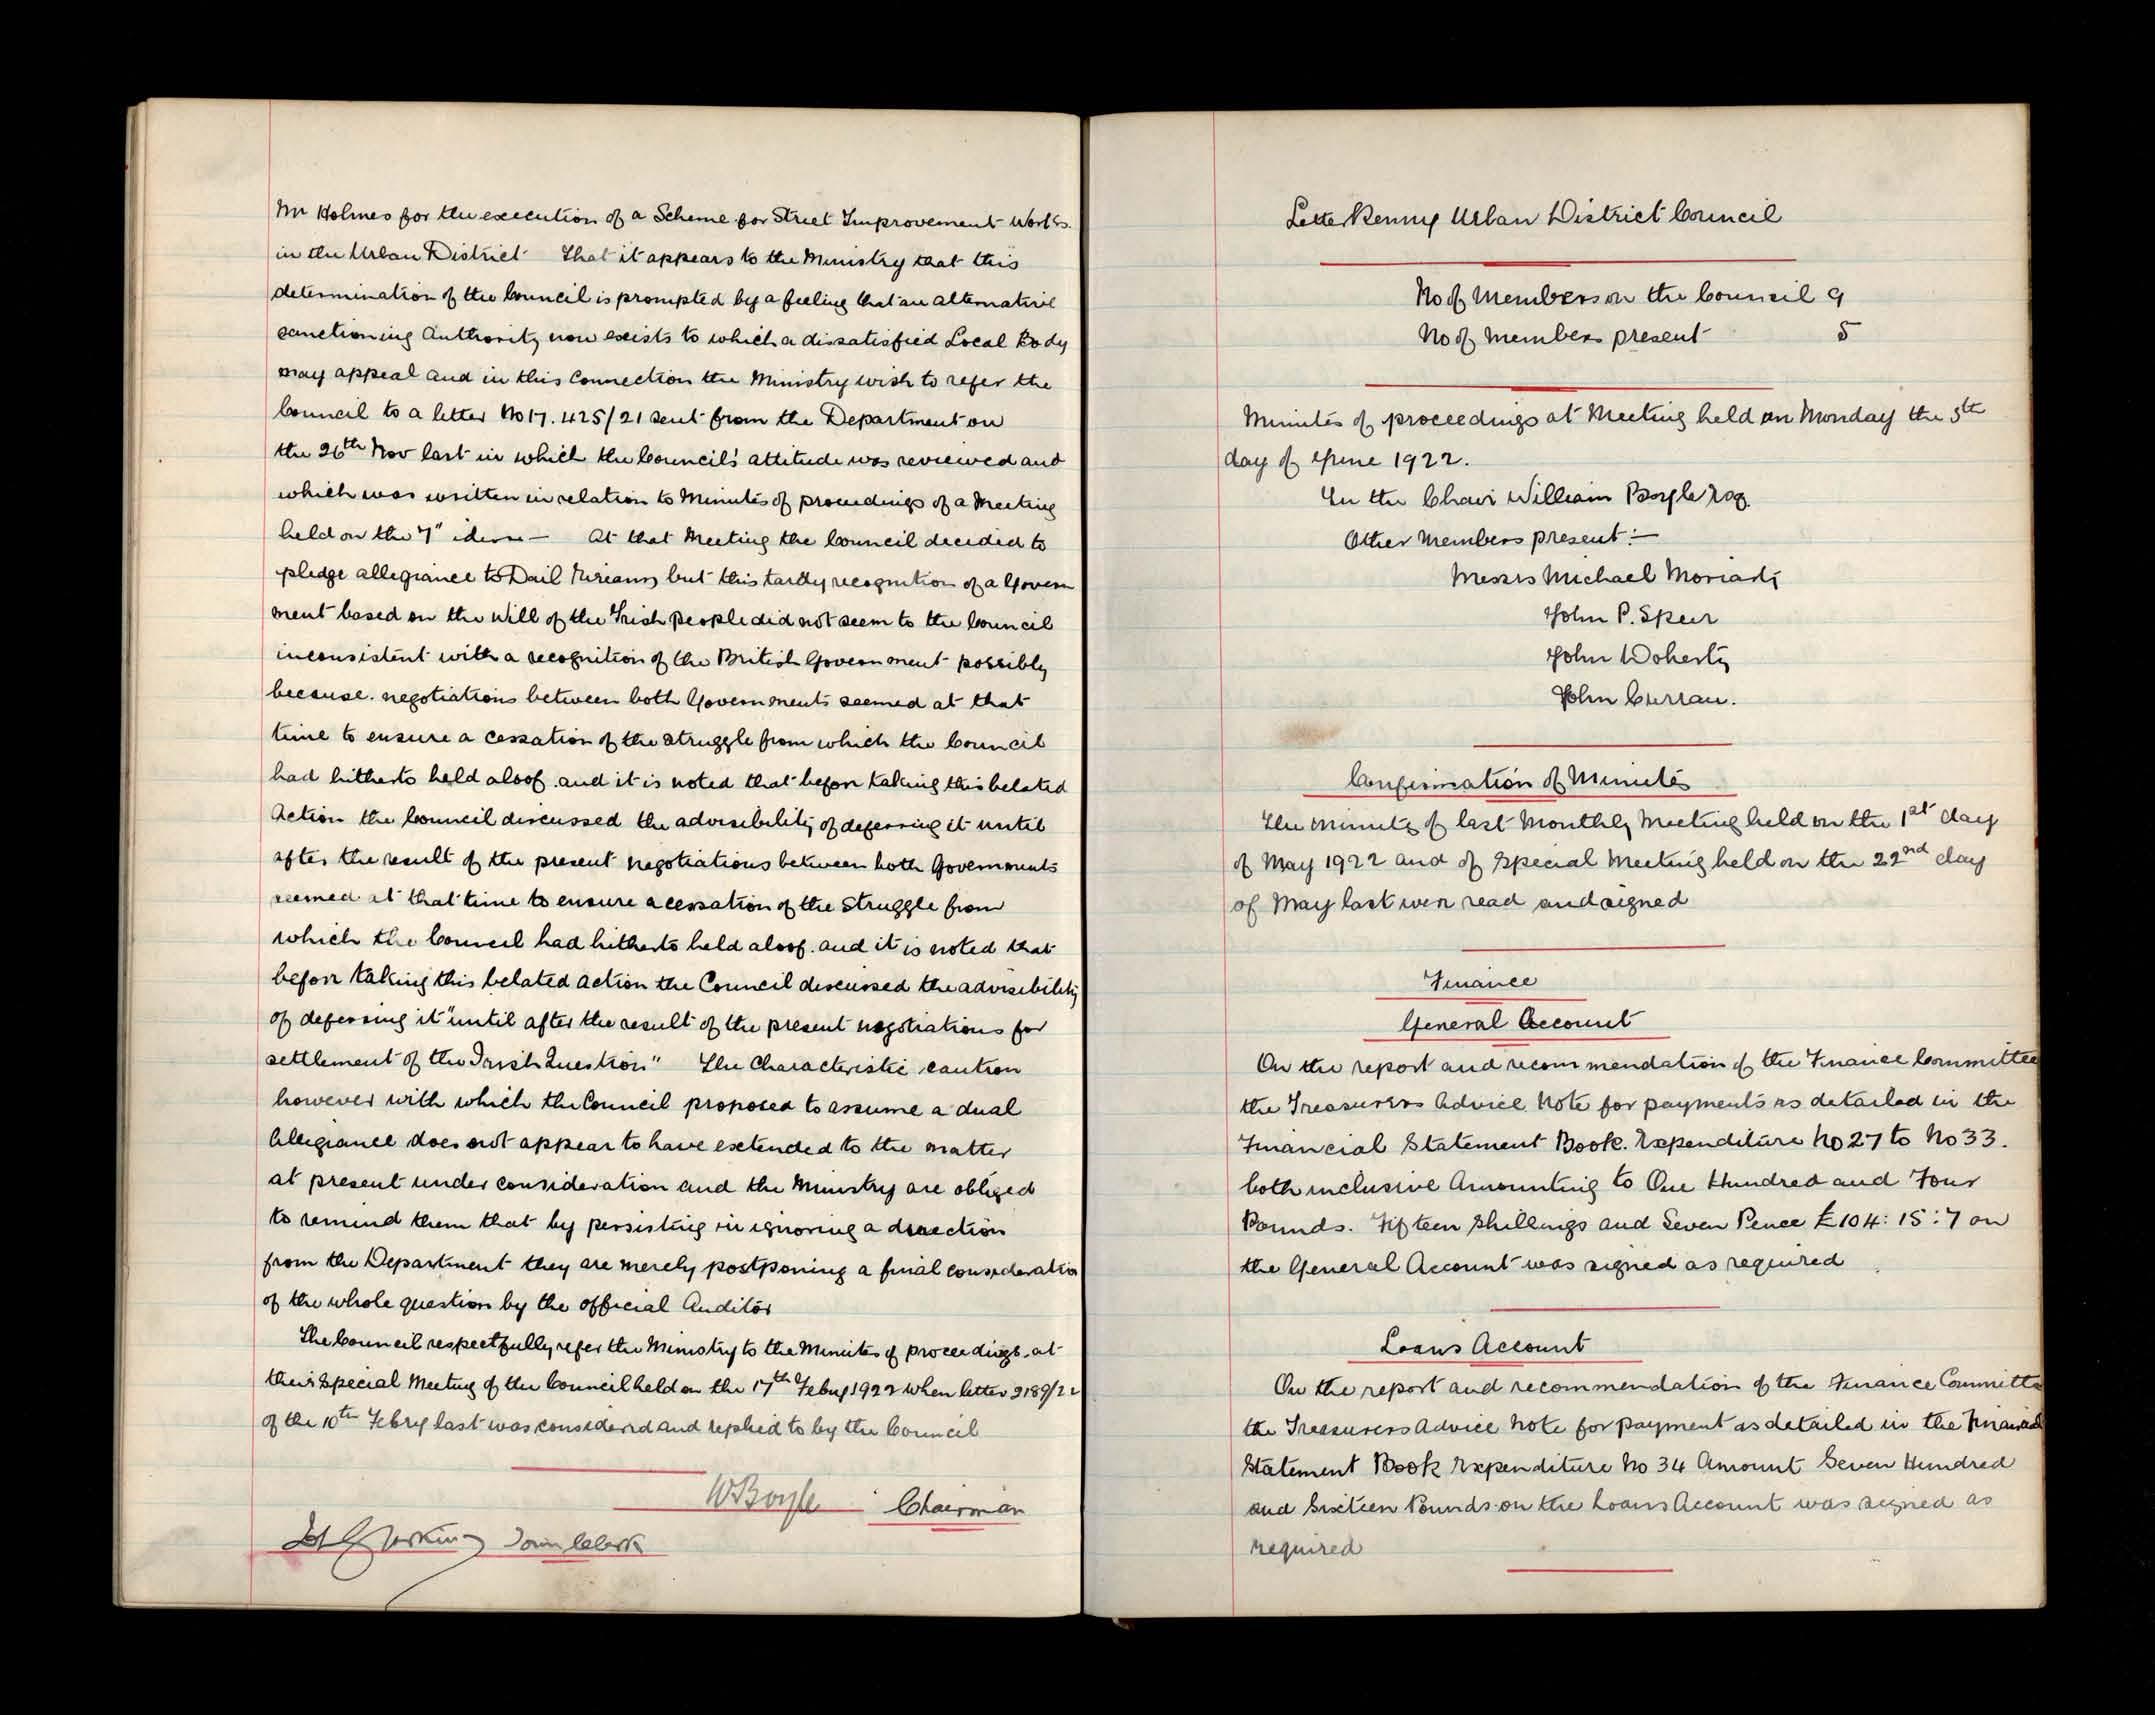 Mr Holmes for the execution of a Scheme for Street Improvement Works.
in the Urban District That it appears to the Ministry that this
determination of the Council is prompted by a feeling that an alternative
sanctioning Authority now exists to which a dissatisfied Local Body
may appeal and in this connection the Ministry wish to refer the
Council to a letter No 17.425/21 sent from the Department on
the 26th Nov last in which the Council's attitude was reviewed and
which was written in relation to Minutes of proceedings of a Meeting
held on the 7" idem — At that Meeting the Council decided to
pledge allegiance to Dail Eireann but this tardy recognition of a Govern
ment based on the Will of the Irish people did not seem to the Council
inconsistent with a recognition of the British Government possibly
because. negotiations between both Governments seemed at that
time to ensure a cessation of the struggle from which the Council
had hitherto held aloof. and it is noted that before taking this belated
Action the Council discussed the advisibility of deferring it until
after the result of the present negotiations between both Governments
seemed at that time to ensure a cessation of the Struggle from
which the Council had hitherto held aloof. and it is noted that
before taking this belated action the Council discussed the advisibility
of deferring it "until after the result of the present negotiations for
settlement of the Irish Question" The Characteristic caution
however with which the Council proposed to assume a dual
Allegiance does not appear to have extended to the matter
at present under consideration and the Ministry are obliged
to remind them that by persisting in ignoring a direction
from the Department they are merely postponing a final consideration
of the whole question by the official Auditor
The Council respectfully refer the Ministry to the Minutes of proceedings at
their Special Meeting of the Council held on the 17th Febry 1922 when letter 9189/22
of the 10th Febry last was considered and replied to by the Council
W Boyle Chairman
Town Clerk
Letterkenny Urban District Council
No of Members on the Council 9
No of Members present 5
Minutes of proceedings at Meeting held on Monday the 5th
day of June 1922.
In the Chair William Boyle Esq.
Other Members present:—
Messrs Michael Moriarty
John P. Speer
John Doherty
John Curran.
Confirmation of Minutes
The Minutes of last Monthly Meeting held on the 1st day
of May 1922 and of Special Meeting held on the 22nd day
of May last were read and signed
Finance
General Account
On the report and recommendation of the Finance Committee
the Treasurers Advice Note for payments as detailed in the
Financial Statement Book. Expenditure No 27 to No 33.
both inclusive Amounting to One Hundred and Four
Pounds. Fifteen Shillings and Seven Pence £104:15:7 on
the General Account was signed as required
Loans Account
On the report and recommendation of the Finance Committee
the Treasurers Advice Note for payment as detailed in the Financial
Statement Book Expenditure No 34 Amount Seven Hundred
and Sixteen Pounds on the Loans Account was signed as
required